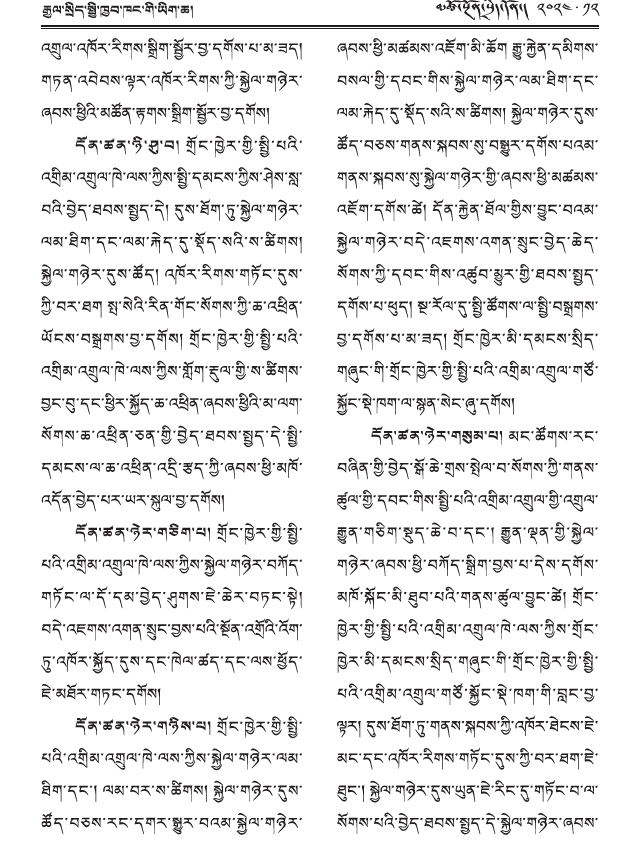 རྒྱལ་སྲིད་སྤྱི་ཁྱབ་ཁང་གི་ཡིག་ཆ།
༢༠༢༤·༡༢
འགྲུལ་འཁོར་རིགས་སྒྲིག་སྦྱོར་བྱ་དགོས་པ་མ་ཟད།
གཏན་འབེབས་ལྟར་འཁོར་རིགས་ཀྱི་སྐྱེལ་གཉེར་
ཞབས་ཕྱིའི་མཚོན་རྟགས་སྒྲིག་སྦྱོར་བྱ་དགོས།
དོན་ཚན་ཉི་ཤུ་བ། གྲོང་ཁྱེར་གྱི་སྤྱི་པའི་
འགྲིམ་འགྲུལ་ཁེ་ལས་ཀྱིས་སྤྱི་དམངས་ཀྱིས་ཤེས་སླ་
བའི་བྱེད་ཐབས་སྤྱད་དེ། དུས་ཐོག་ཏུ་སྐྱེལ་གཉེར་
ལམ་ཐིག་དང་ལམ་རྐེད་དུ་སྡོད་སའི་ས་ཚིགས།
སྐྱེལ་གཉེར་དུས་ཚོད། འཁོར་རིགས་གཏོང་དུས་
ཀྱི་བར་ཐག སྤ་སེའི་རིན་གོང་སོགས་ཀྱི་ཆ་འཕྲིན་
ཡོངས་བསྒྲགས་བྱ་དགོས། གྲོང་ཁྱེར་གྱི་སྤྱི་པའི་
འགྲིམ་འགྲུལ་ཁེ་ལས་ཀྱིས་གློག་རྡུལ་གྱི་ས་ཚིགས་
བྱང་བུ་དང་ཕྱིར་སྐྱོད་ཆ་འཕྲིན་ཞབས་ཕྱིའི་མ་ལག་
སོགས་ཆ་འཕྲིན་ཅན་གྱི་བྱེད་ཐབས་སྤྱད་དེ་སྤྱི་
དམངས་ལ་ཆ་འཕྲིན་འདྲི་རྩད་ཀྱི་ཞབས་ཕྱི་མཁོ་
འདོན་བྱེད་པར་ཡར་སྐུལ་བྱ་དགོས།
དོན་ཚན་ཉེར་གཅིག་པ། གྲོང་ཁྱེར་གྱི་སྤྱི་
པའི་འགྲིམ་འགྲུལ་ཁེ་ལས་ཀྱིས་སྐྱེལ་གཉེར་བཀོད་
གཏོང་ལ་དོ་དམ་བྱེད་ཤུགས་ཇེ་ཆེར་བཏང་སྟེ།
བདེ་འཇགས་འགན་སྲུང་བྱས་པའི་སྔོན་འགྲོའི་འོག་
ཏུ་འཁོར་སྐྱོད་དུས་དང་ཁེལ་ཚད་དང་ལས་ཕྱོད་
ཇེ་མཐོར་གཏང་དགོས།
དོན་ཚན་ཉེར་གཉིས་པ། གྲོང་ཁྱེར་གྱི་སྤྱི་
པའི་འགྲིམ་འགྲུལ་ཁེ་ལས་ཀྱིས་སྐྱེལ་གཉེར་ལམ་
ཐིག་དང༌། ལམ་བར་ས་ཚིགས། སྐྱེལ་གཉེར་དུས་
ཚོད་བཅས་རང་དགར་སྒྱུར་བའམ་སྐྱེལ་གཉེར་
ཞབས་ཕྱི་མཚམས་འཇོག་མི་ཆོག རྒྱུ་རྐྱེན་དམིགས་
བསལ་གྱི་དབང་གིས་སྐྱེལ་གཉེར་ལམ་ཐིག་དང་
ལམ་རྐེད་དུ་སྡོད་སའི་ས་ཚིགས། སྐྱེལ་གཉེར་དུས་
ཚོད་བཅས་གནས་སྐབས་སུ་བསྒྱུར་དགོས་པའམ་
གནས་སྐབས་སུ་སྐྱེལ་གཉེར་གྱི་ཞབས་ཕྱི་མཚམས་
འཇོག་དགོས་ཚེ། དོན་རྐྱེན་ཐོལ་གྱིས་བྱུང་བའམ་
སྐྱེལ་གཉེར་བདེ་འཇགས་འགན་སྲུང་བྱེད་ཆེད་
སོགས་ཀྱི་དབང་གིས་འཚུབ་མྱུར་གྱི་ཐབས་སྤྱད་
དགོས་པ་ཕུད། སྔ་རོལ་དུ་སྤྱི་ཚོགས་ལ་སྤྱི་བསྒྲགས་
བྱ་དགོས་པ་མ་ཟད། གྲོང་ཁྱེར་མི་དམངས་སྲིད་
གཞུང་གི་གྲོང་ཁྱེར་གྱི་སྤྱི་པའི་འགྲིམ་འགྲུལ་གཙོ་
སྐྱོང་སྡེ་ཁག་ལ་སྙན་སེང་ཞུ་དགོས།
དོན་ཚན་ཉེར་གསུམ་པ། མང་ཚོགས་རང་
བཞིན་གྱི་བྱེད་སྒོ་ཆེ་གྲས་སྤེལ་བ་སོགས་ཀྱི་གནས་
ཚུལ་གྱི་དབང་གིས་སྤྱི་པའི་འགྲིམ་འགྲུལ་གྱི་འགྲུལ་
རྒྱུན་གཅིག་སྡུད་ཆེ་བ་དང༌། རྒྱུན་ལྡན་གྱི་སྐྱེལ་
གཉེར་ཞབས་ཕྱི་བཀོད་སྒྲིག་བྱས་པ་དེས་དགོས་
མཁོ་སྐོང་མི་ཐུབ་པའི་གནས་ཚུལ་བྱུང་ཚེ། གྲོང་
ཁྱེར་གྱི་སྤྱི་པའི་འགྲིམ་འགྲུལ་ཁེ་ལས་ཀྱིས་གྲོང་
ཁྱེར་མི་དམངས་སྲིད་གཞུང་གི་གྲོང་ཁྱེར་གྱི་སྤྱི་
པའི་འགྲིམ་འགྲུལ་གཙོ་སྐྱོང་སྡེ་ཁག་གི་བླང་བྱ་
ལྟར། དུས་ཐོག་ཏུ་གནས་སྐབས་ཀྱི་འཁོར་ཐེངས་ཇེ་
མང་དང་འཁོར་རིགས་གཏོང་དུས་ཀྱི་བར་ཐག་ཇེ་
ཐུང༌། སྐྱེལ་གཉེར་དུས་ཡུན་ཇེ་རིང་དུ་གཏོང་བ་ལ་
སོགས་པའི་བྱེད་ཐབས་སྤྱད་དེ་སྐྱེལ་གཉེར་ཞབས་